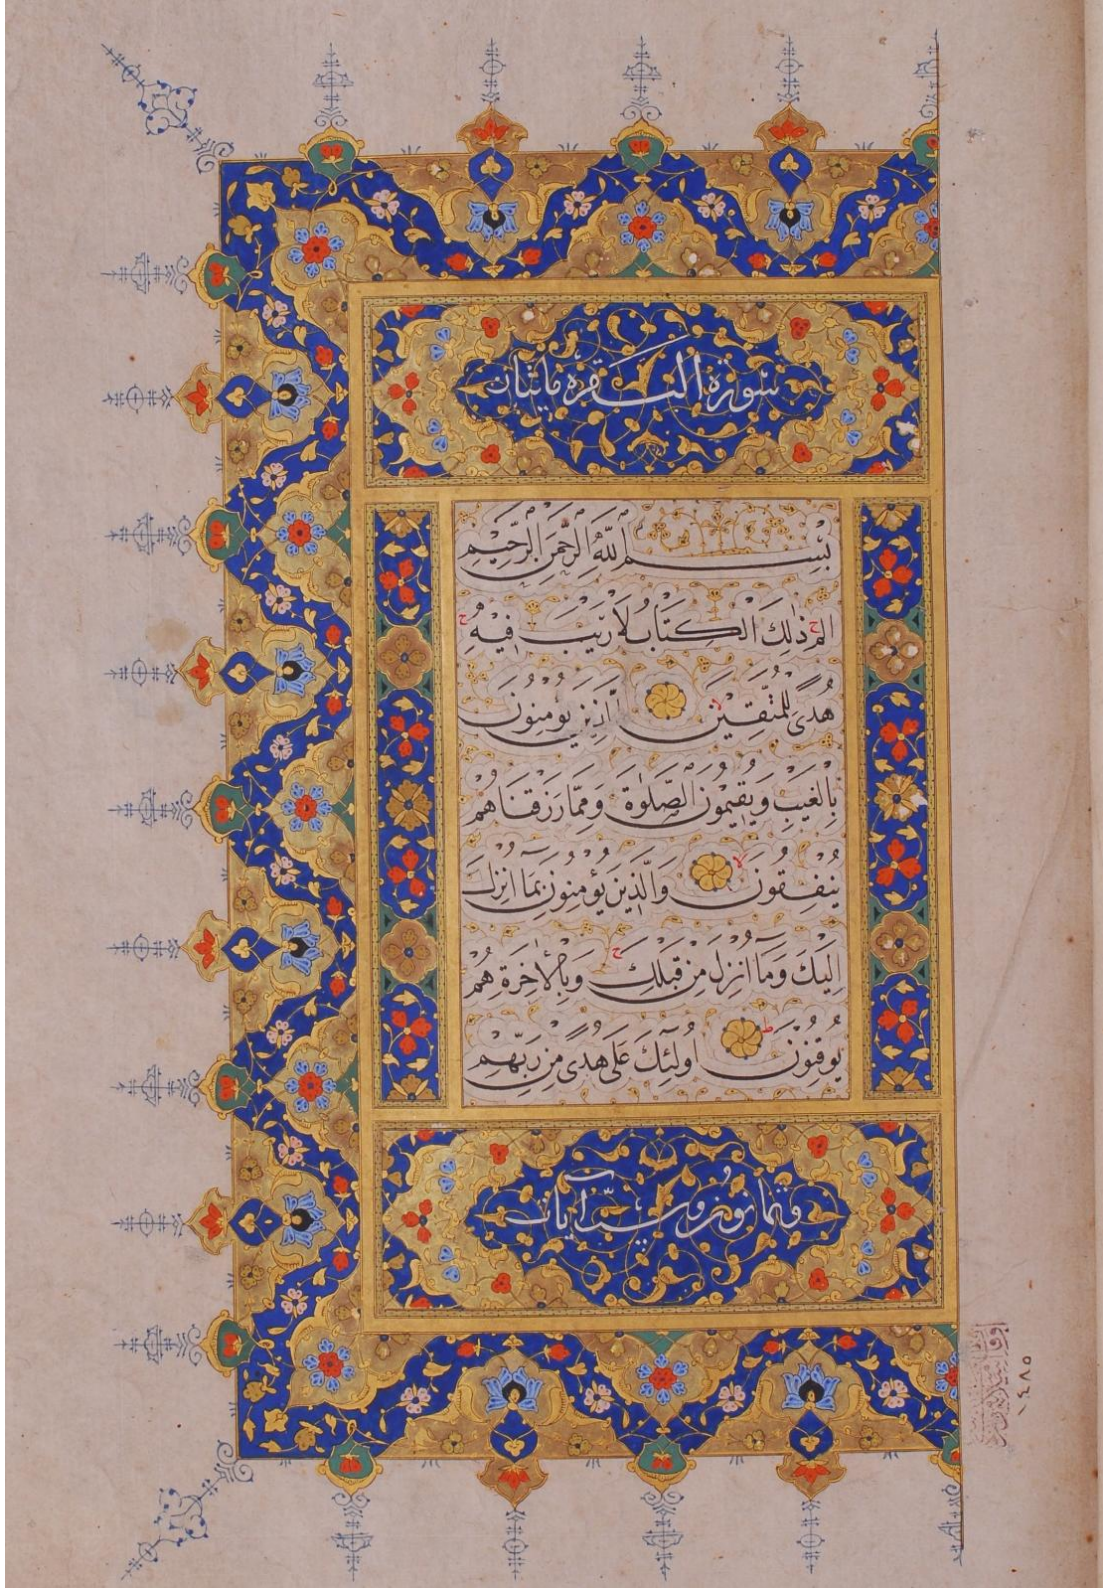 سورة البقره مايتان
بِسْمِ اللّٰهِ الرَّحْمٰنِ الرَّحِيمِ
الم ج ذٰلِكَ الْكِتَابُ لَا رَيْبَ فِيهِ ج
هُدًى لِلْمُتَّقِينَ لا الَّذِينَ يُؤْمِنُونَ
بِالْغَيْبِ وَيُقِيمُونَ الصَّلٰوةَ وَمِمَّا رَزَقْنَاهُمْ
يُنْفِقُونَ لا وَالَّذِينَ يُؤْمِنُونَ بِمَا اُنْزِلَ
اِلَيْكَ وَمَا اُنْزِلَ مِنْ قَبْلِكَ ج وَبِالْاٰخِرَةِ هُمْ
يُوقِنُونَ ط اُولٰئِكَ عَلٰى هُدًى مِنْ رَبِّهِمْ
وثمانون وست آيات
١٤٨٥